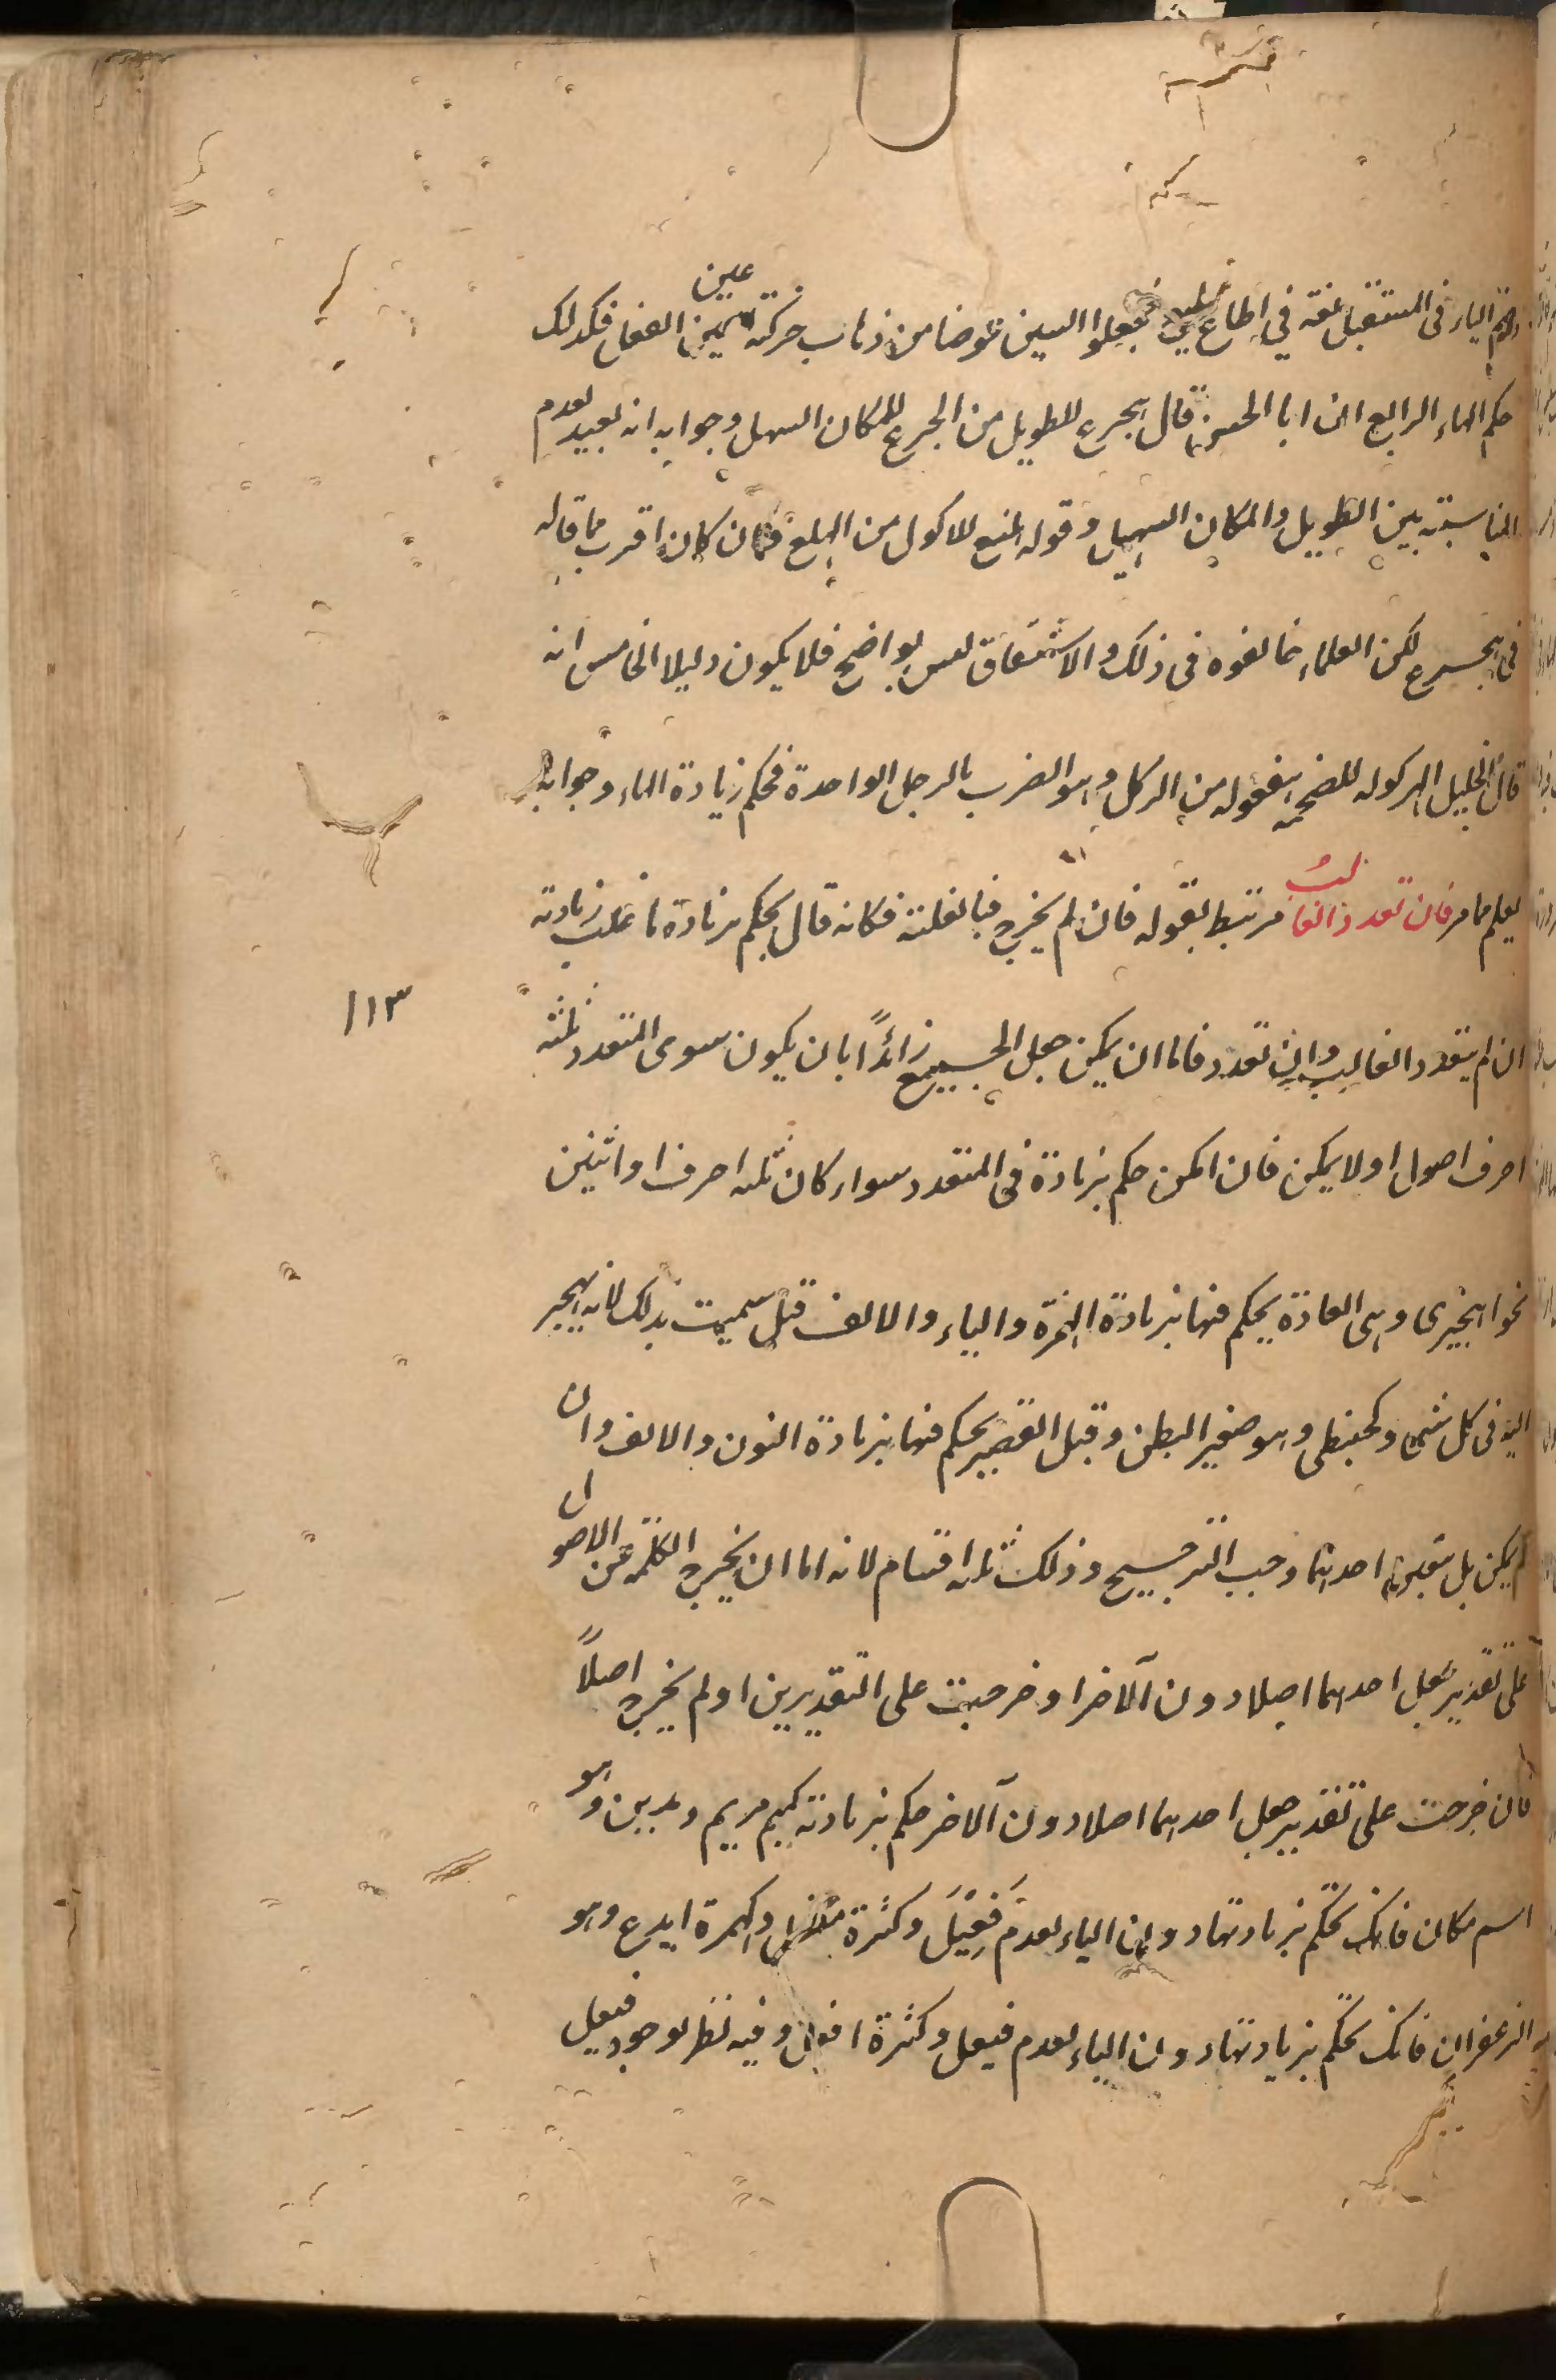 وضم الياء فى المستقبل لغة في اطاع يطيع فجعلوا السين عوضا من ذهاب حركة عين الفعل فكذلك
حكم الهاء الرابع ان ابا الحسن قال هجرع للطويل من الجرع للمكان السهل وجوابه انه بعيد لعدم
المناسبة بين الطويل والمكان السهل وقوله هبلع للاكول من البلع فان كان اقرب مما قاله
فى هجرع لكن العلماء خالفوه فى ذلك والاشتقاق ليس بواضح فلا يكون دليلا الخامس انه
قال الخليل الهركولة للضخمة هفعولة من الركل وهو الضرب بالرجل الواحدة فحكم زيادة الهاء وجوابه
يعلم مما مر فان تعدد الغالب مرتبط بقوله فان لم يخرج فبالغلبة فكانه قال يحكم بزيادة ما غلب زيادته
ان لم يتعدد الغالب وان تعدد فاما ان يمكن جعل الجميع زائدًا بان يكون سوى المتعدد ثلثة
احرف اصول او لا يمكن فان امكن حكم بزيادة فى المتعدد سواء كان ثلثة احرف او اثنين
نحو اهجيرى وهى العادة يحكم فيها بزيادة الهمزة والياء والالف قيل سميت بذلك لانه يهجر
اليه فى كل شىء وكحبنطى وهو صغير البطن وقيل القصير يحكم فيها بزيادة النون والالف وان
لم يمكن بل تعين احدهما وجب الترجيح وذلك ثلثة اقسام لانه اما ان يخرج الكلمة عن الاصول
على تقدير جعل احدهما اصلا دون الآخر او خرجت على التقديرين او لم يخرج اصلًا
فان خرجت على تقدير جعل احدهما اصلا دون الآخر حكم بزيادته كميم مريم ومدين وهو
اسم مكان فانك تحكم بزيادتها دون الياء لعدم فَعْيَل وكثرة مفعل وكهمزة ايدع وهو
الزعفران فانك تحكم بزيادتها دون الياء لعدم فيعل وكثرة افعل وفيه نظر لوجود فيعل
١١٣